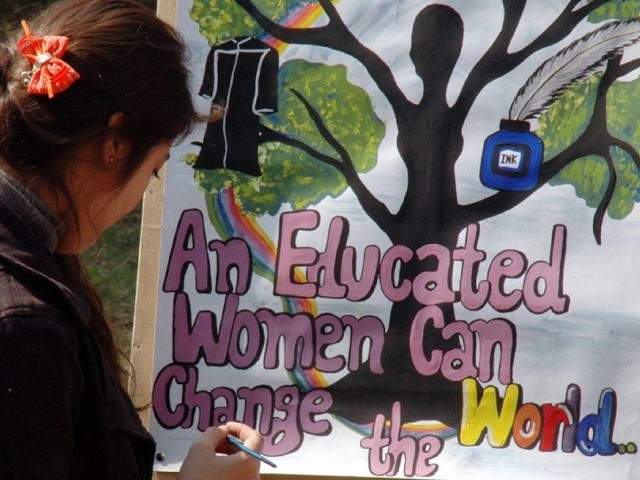 INK
An Educated
Women Can
Change the World..